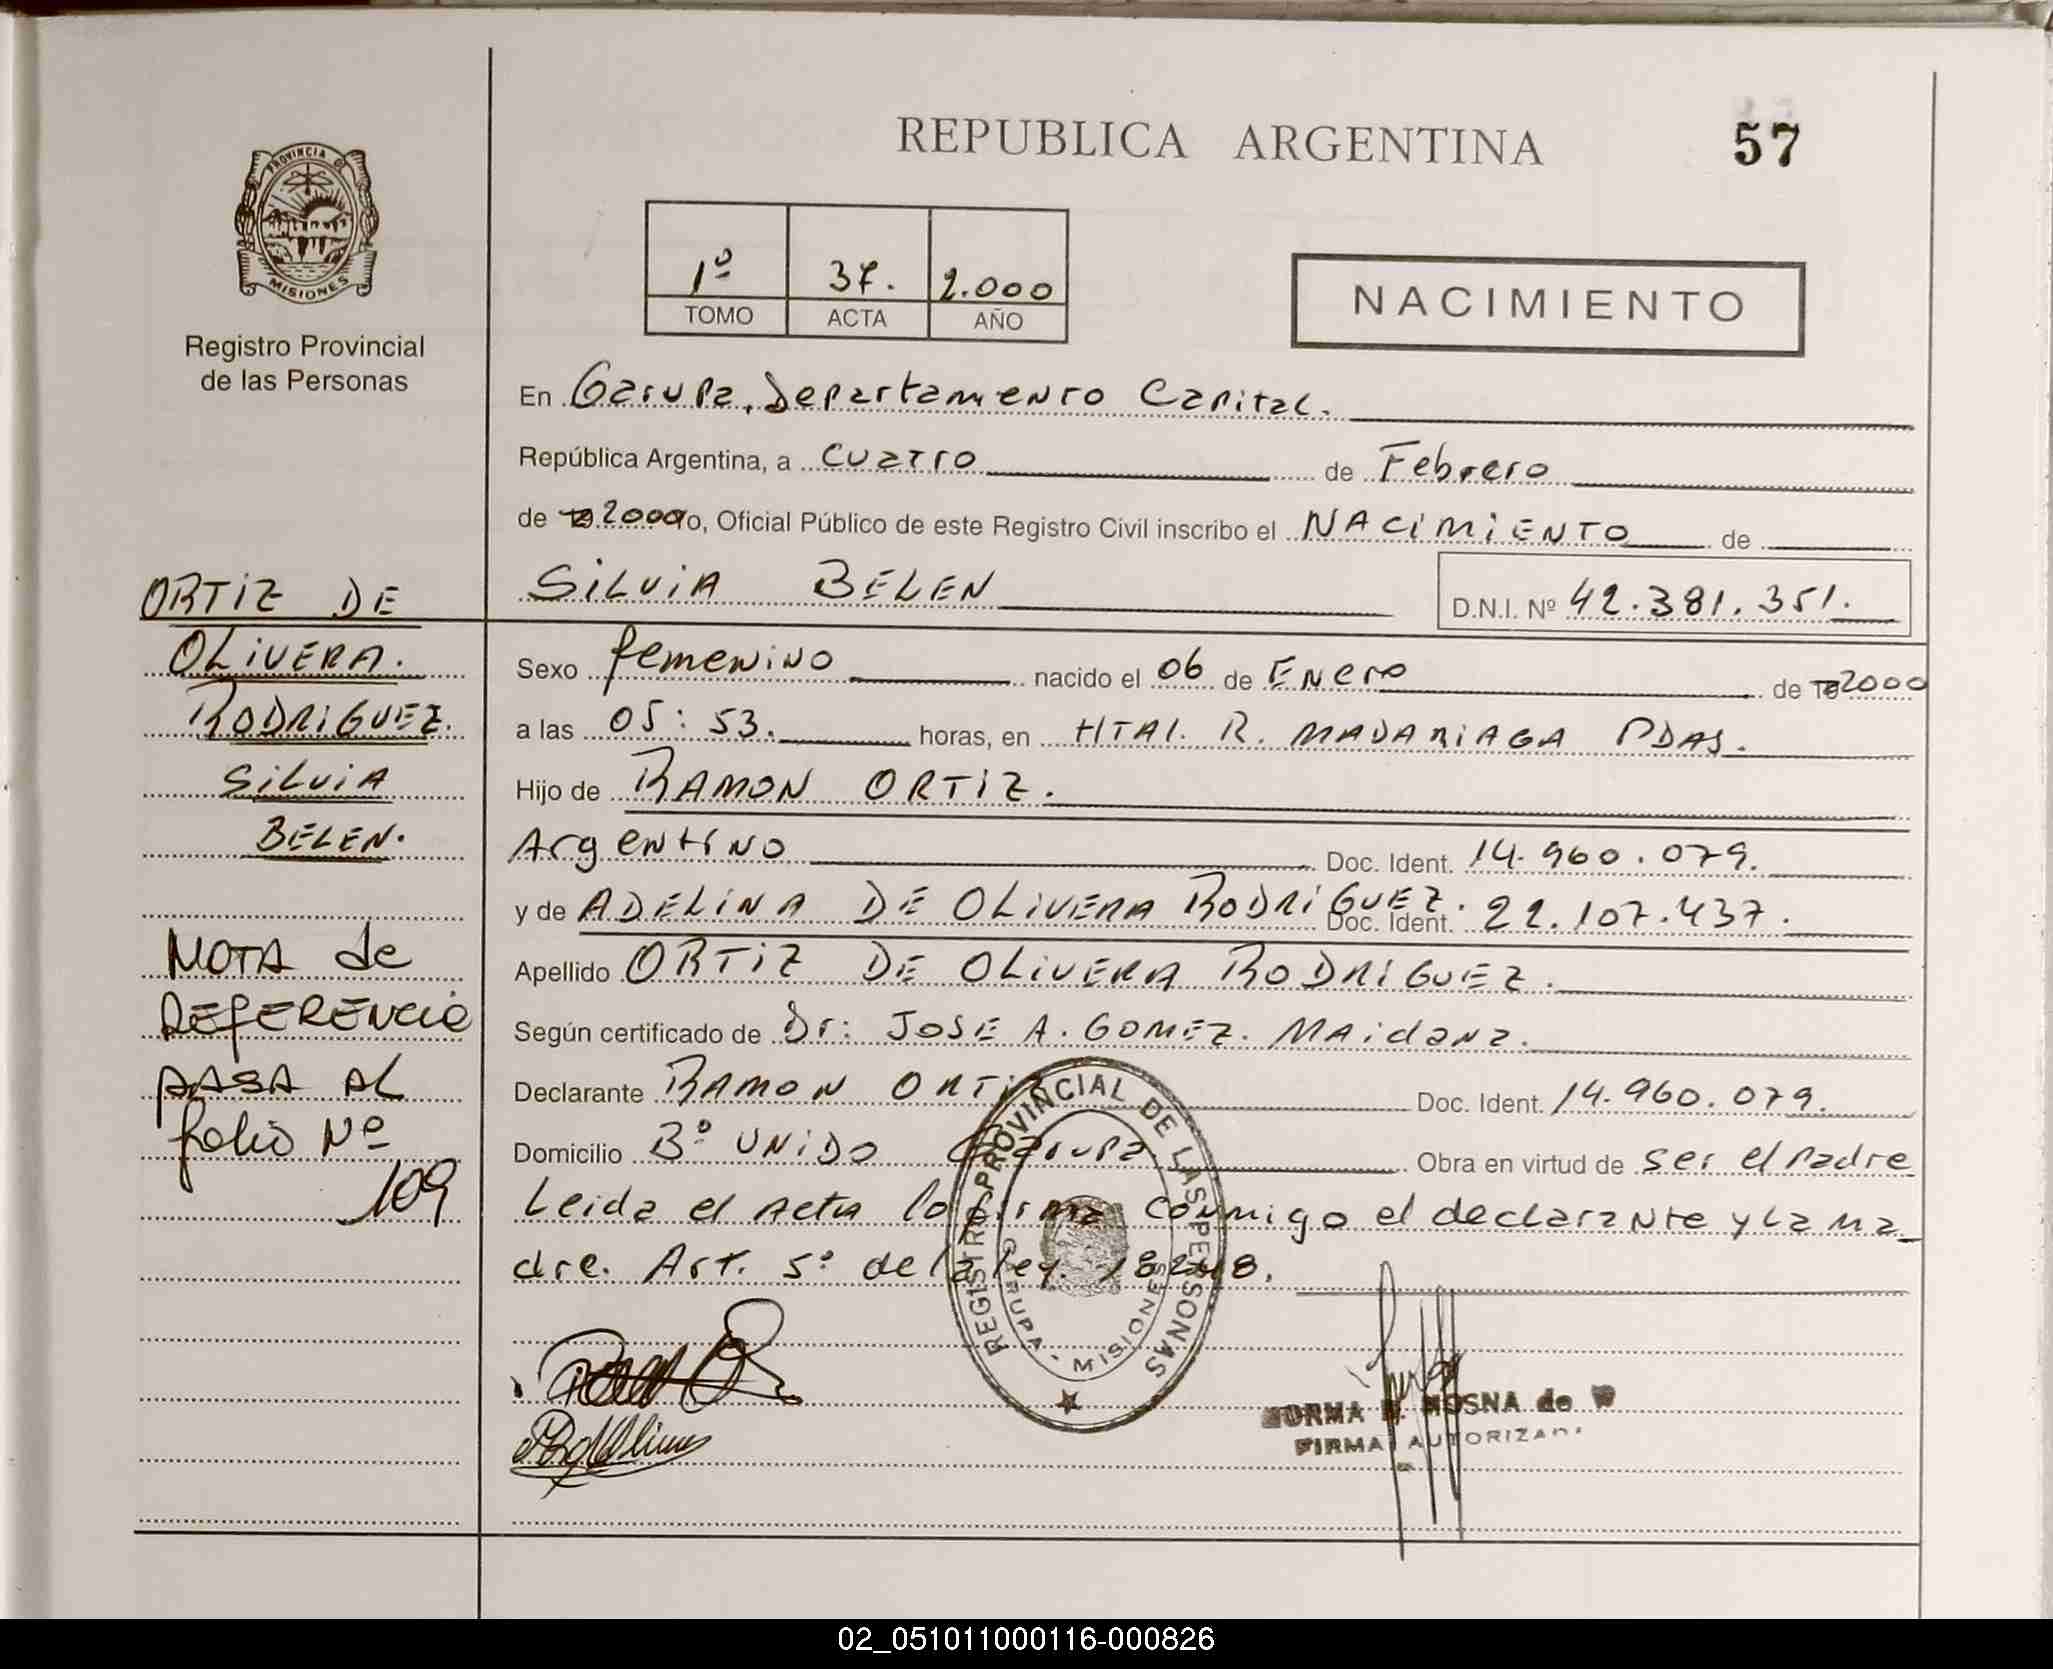 REPUBLICA ARGENTINA
57
PROVINCIA DE
MISIONES
Registro Provincial
de las Personas
1º 37. 2.000
TOMO ACTA AÑO
NACIMIENTO
En Garupa, Departamento Capital.
República Argentina, a cuatro de Febrero
de 2000 yo, Oficial Público de este Registro Civil inscribo el NACIMIENTO de
SILVIA BELEN D.N.I. Nº 42.381.351.
Sexo femenino nacido el 06 de Enero de 2000
a las 05:53. horas, en HTAl. R. MADARIAGA PDAS.
Hijo de RAMON ORTIZ.
Argentino Doc. Ident. 14.960.079.
y de ADELINA DE OLIVERA RODRIGUEZ. Doc. Ident. 22.107.437.
Apellido ORTIZ DE OLIVERA RODRIGUEZ.
Según certificado de Dr: JOSE A. GOMEZ. MAidana.
Declarante RAMON ORTIZ Doc. Ident. 14.960.079.
Domicilio Bº UNIDO Garupa. Obra en virtud de ser el padre
Leida el Acta la firma conmigo el declarante y la ma
dre. Art. 5º de la ley. 18248.
ORTIZ DE
OLIVERA.
RODRIGUEZ.
SILVIA
BELEN.
NOTA de
REFERENCIA
PASA AL
folio Nº
109
REGISTRO PROVINCIAL DE LAS PERSONAS
GARUPA - MISIONES
NORMA MOSNA de
FIRMA AUTORIZADA
02_051011000116-000826